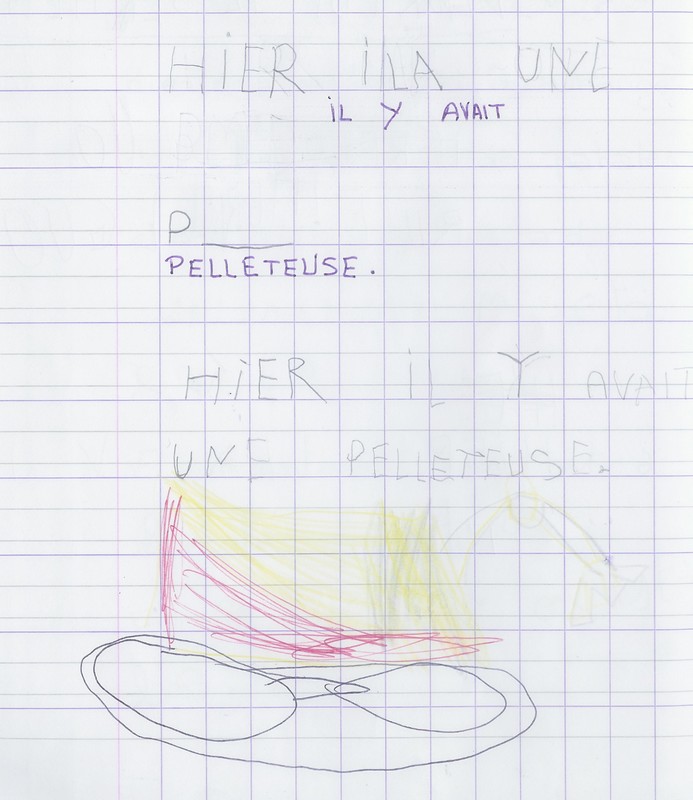 HiER iLA UNE
iL Y AVAIT
P
PELLETEUSE.
HiER iL Y AVAIT
UNE PELLETEUSE.